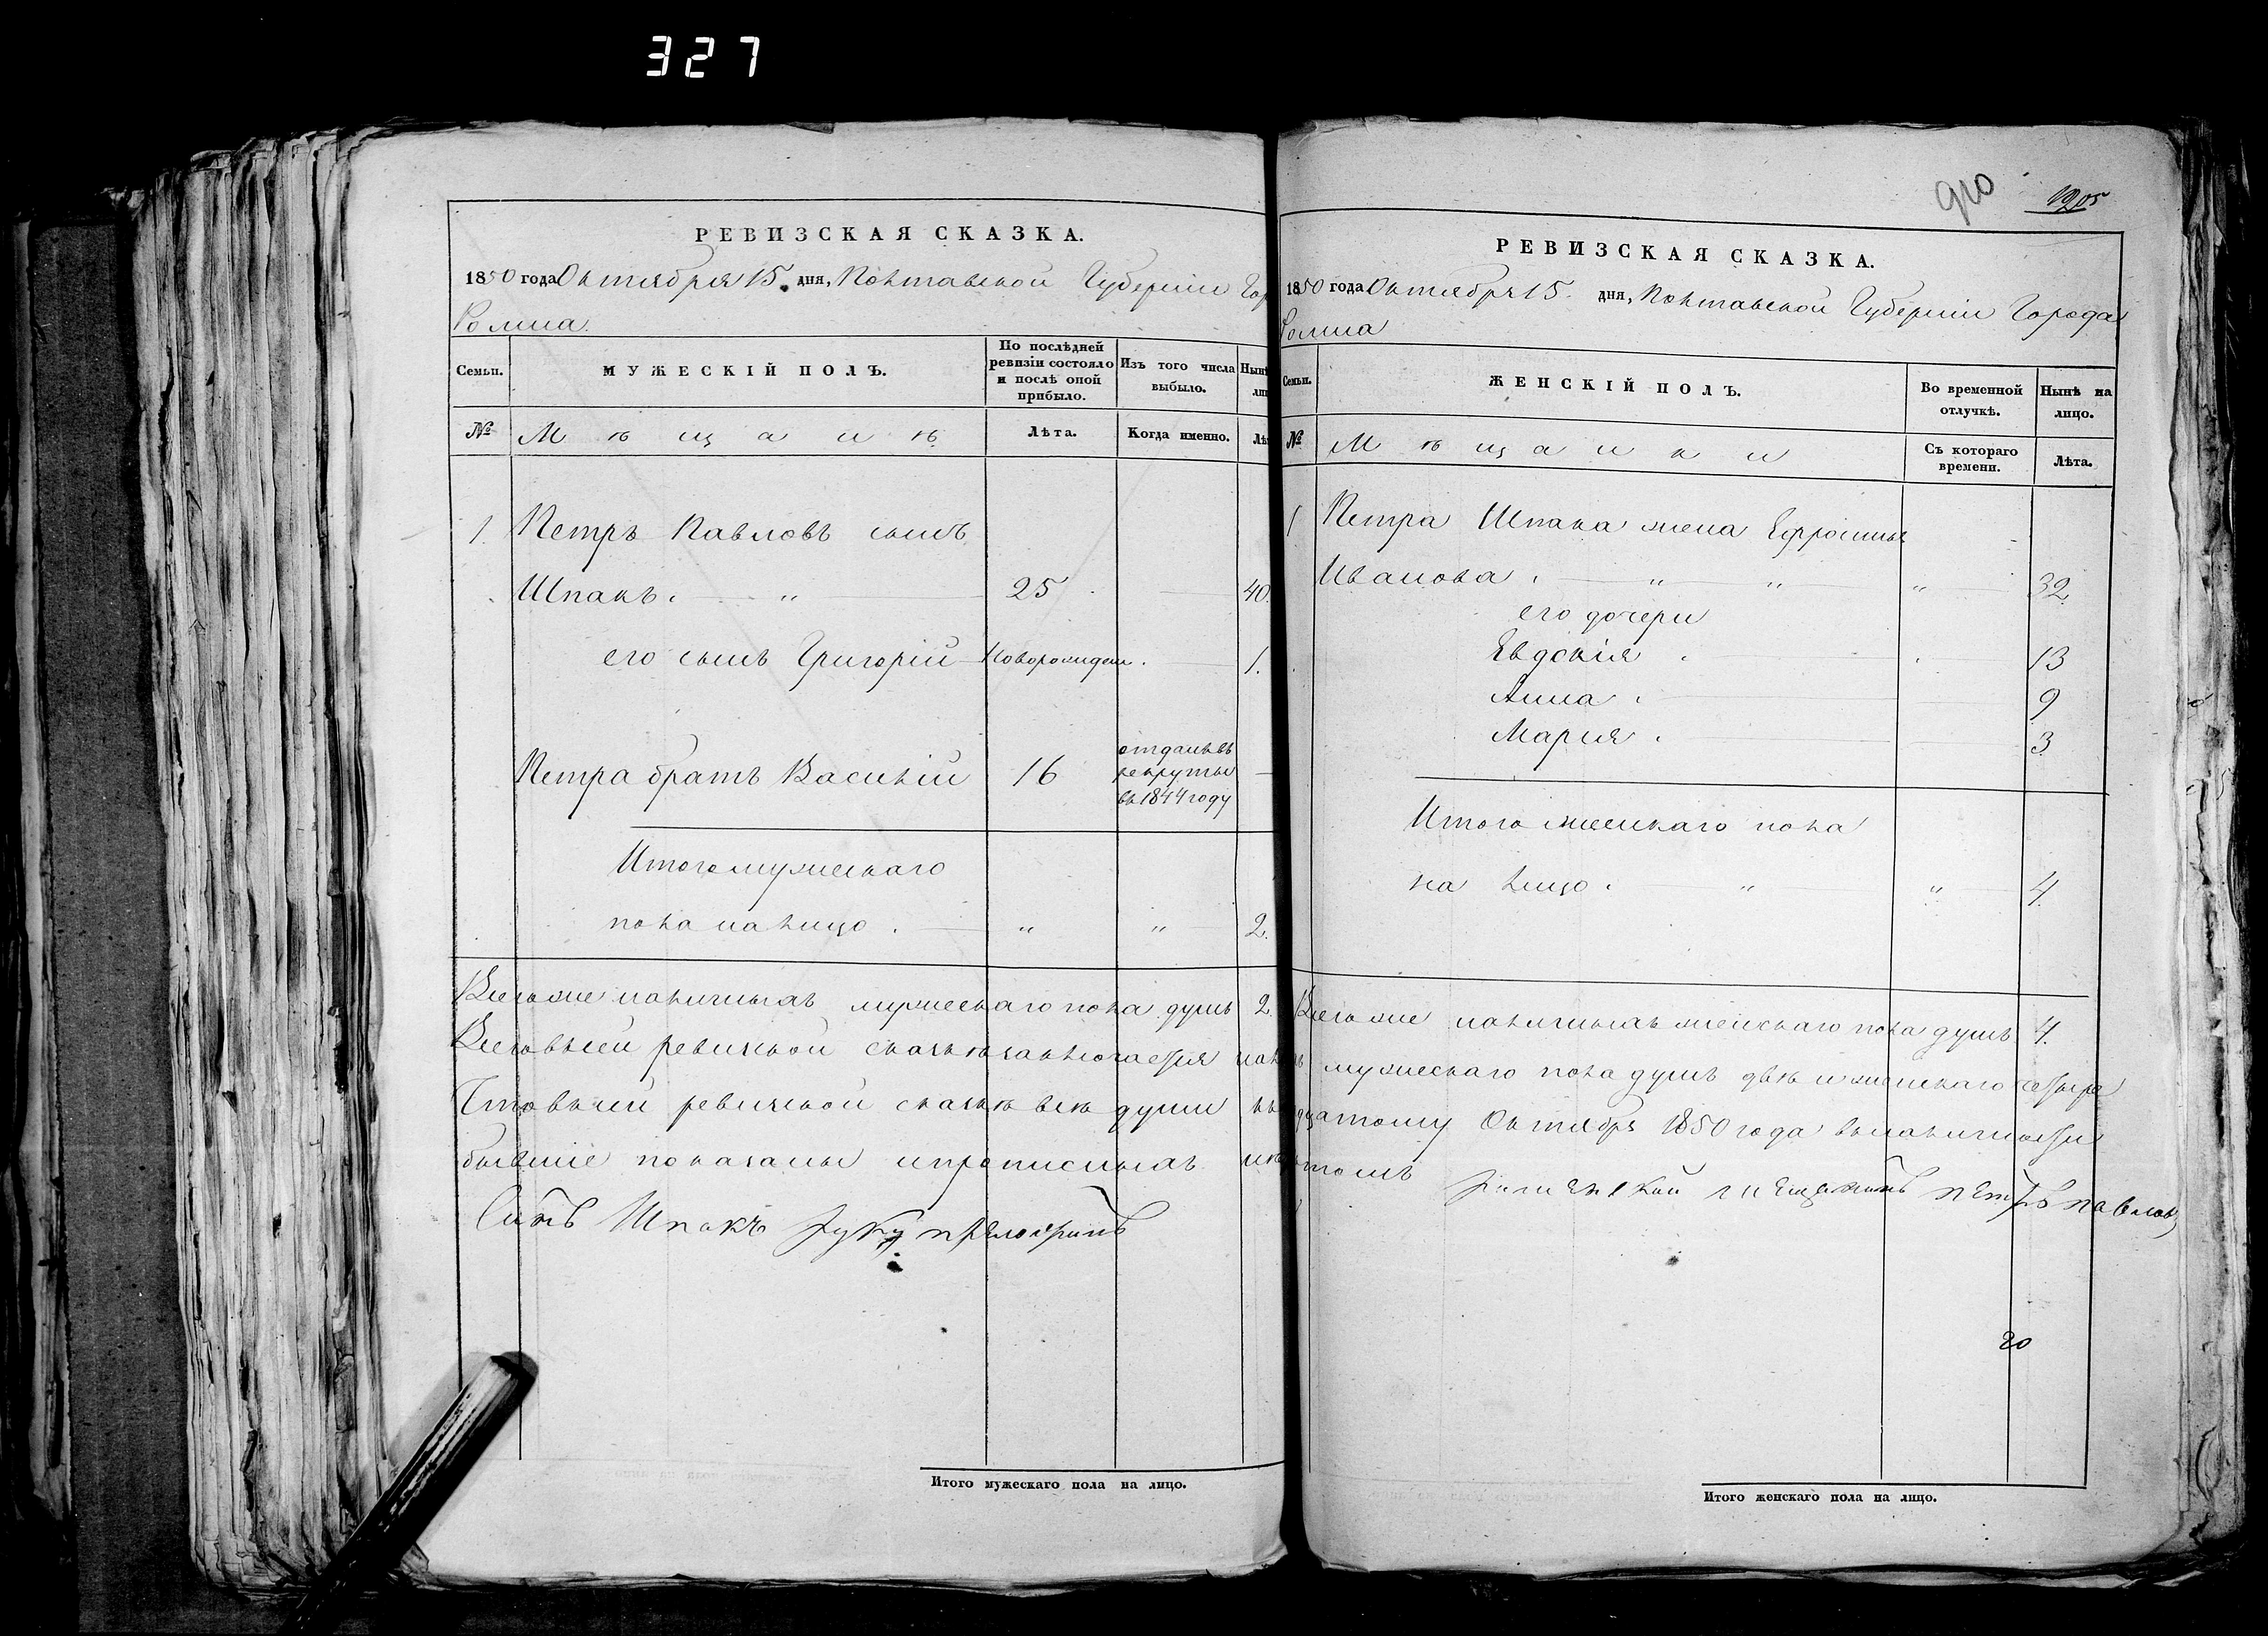 327
РЕВИЗСКАЯ СКАЗКА.
1850 года Октября 15. дня, Полтавской Губерніи Гор
Ромна.
Семьи.
МУЖЕСКІЙ ПОЛЪ.
По послѣдней ревизіи состояло и послѣ оной прибыло.
Изъ того числа выбыло.
Нынѣ
ли
№
Мѣщанъ.
Лѣта.
Когда именно.
Лѣ
1. Петръ Павловъ сынъ
Шпакъ. — „ — 25 — 40.
его сынъ Григорій — Новорожден. — 1.
Петра братъ Василій 16 —
отданъ въ
рекруты
въ 1844 году
Итого мужескаго
пола на лицо. — „ „ 2.
мужескаго пола душъ 2.
ревизской сказкѣ заключается нал
ревизской сказкѣ всѣ души къ
бывшіе показаны и прописныхъ нѣ
Шпакъ руку приложилъ
910
1205
РЕВИЗСКАЯ СКАЗКА.
1850 года Октября 15. дня, Полтавской Губерніи Города
Ромна
Семьи.
ЖЕНСКІЙ ПОЛЪ.
Во временной отлучкѣ.
Нынѣ на лицо.
№
Мѣщанки
Съ котораго времени.
Лѣта.
1 Петра Шпака жена Ефросинья
Иванова. — „ „ „ 32.
его дочери
Евдокія . — 13
Анна . — 9
Марія . — 3.
Итого женскаго пола
на лицо. — „ „ 4.
наличныхъ женскаго пола душъ 4.
мужескаго пола душъ двѣ и женскаго четыре
дцатому Октября 1850 года въ наличности
томъ
Роменской мещанинъ Петръ Павловъ
20
Итого мужескаго пола на лицо.
Итого женскаго пола на лицо.